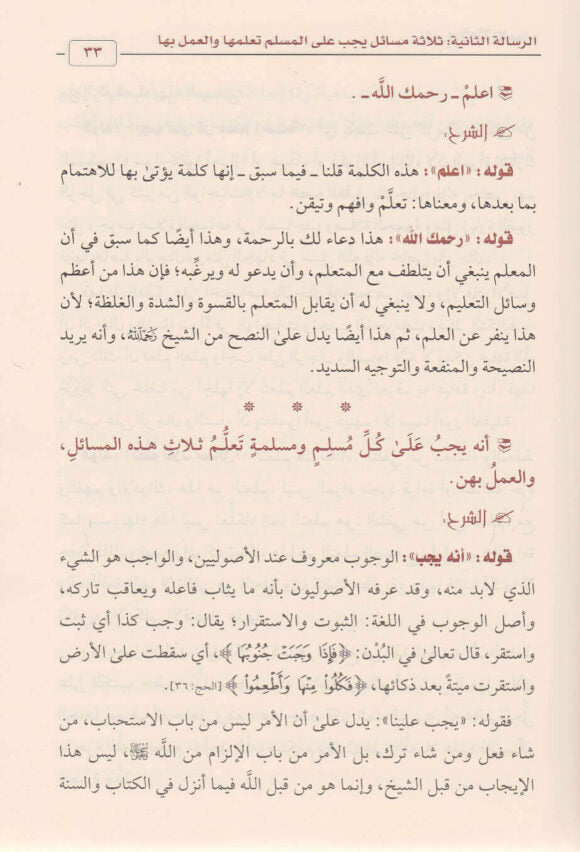 الرسالة الثانية: ثلاثة مسائل يجب على المسلم تعلمها والعمل بها
٣٣
اعلمْ ـ رحمك اللَّه ـ.
الشرح:
قوله: «اعلم»: هذه الكلمة قلنا ـ فيما سبق ـ إنها كلمة يؤتىٰ بها للاهتمام
بما بعدها، ومعناها: تعلَّمْ وافهم وتيقن.
قوله: «رحمك الله»: هذا دعاء لك بالرحمة، وهذا أيضًا كما سبق في أن
المعلم ينبغي أن يتلطف مع المتعلم، وأن يدعو له ويرغِّبه؛ فإن هذا من أعظم
وسائل التعليم، ولا ينبغي له أن يقابل المتعلم بالقسوة والشدة والغلظة؛ لأن
هذا ينفر عن العلم، ثم هذا أيضًا يدل علىٰ النصح من الشيخ رَحِمَهُ اللَّهُ، وأنه يريد
النصيحة والمنفعة والتوجيه السديد.
* * *
أنه يجبُ عَلَىٰ كُلِّ مُسلِمٍ ومسلمةٍ تَعلُّمُ ثلاثِ هذه المسائلِ،
والعملُ بهن.
الشرح:
قوله: «أنه يجب»: الوجوب معروف عند الأصوليين، والواجب هو الشيء
الذي لابد منه، وقد عرفه الأصوليون بأنه ما يثاب فاعله ويعاقب تاركه،
وأصل الوجوب في اللغة: الثبوت والاستقرار؛ يقال: وجب كذا أي ثبت
واستقر، قال تعالىٰ في البُدْن: ﴿فَإِذَا وَجَبَتْ جُنُوبُهَا﴾، أي سقطت علىٰ الأرض
واستقرت ميتةً بعد ذكائها، ﴿فَكُلُوا مِنْهَا وَأَطْعِمُوا﴾ [الحج: ٣٦].
فقوله: «يجب علينا»: يدل علىٰ أن الأمر ليس من باب الاستحباب، من
شاء فعل ومن شاء ترك، بل الأمر من باب الإلزام من اللَّه، ليس هذا
الإيجاب من قبل الشيخ، وإنما هو من قبل اللَّه فيما أنزل في الكتاب والسنة